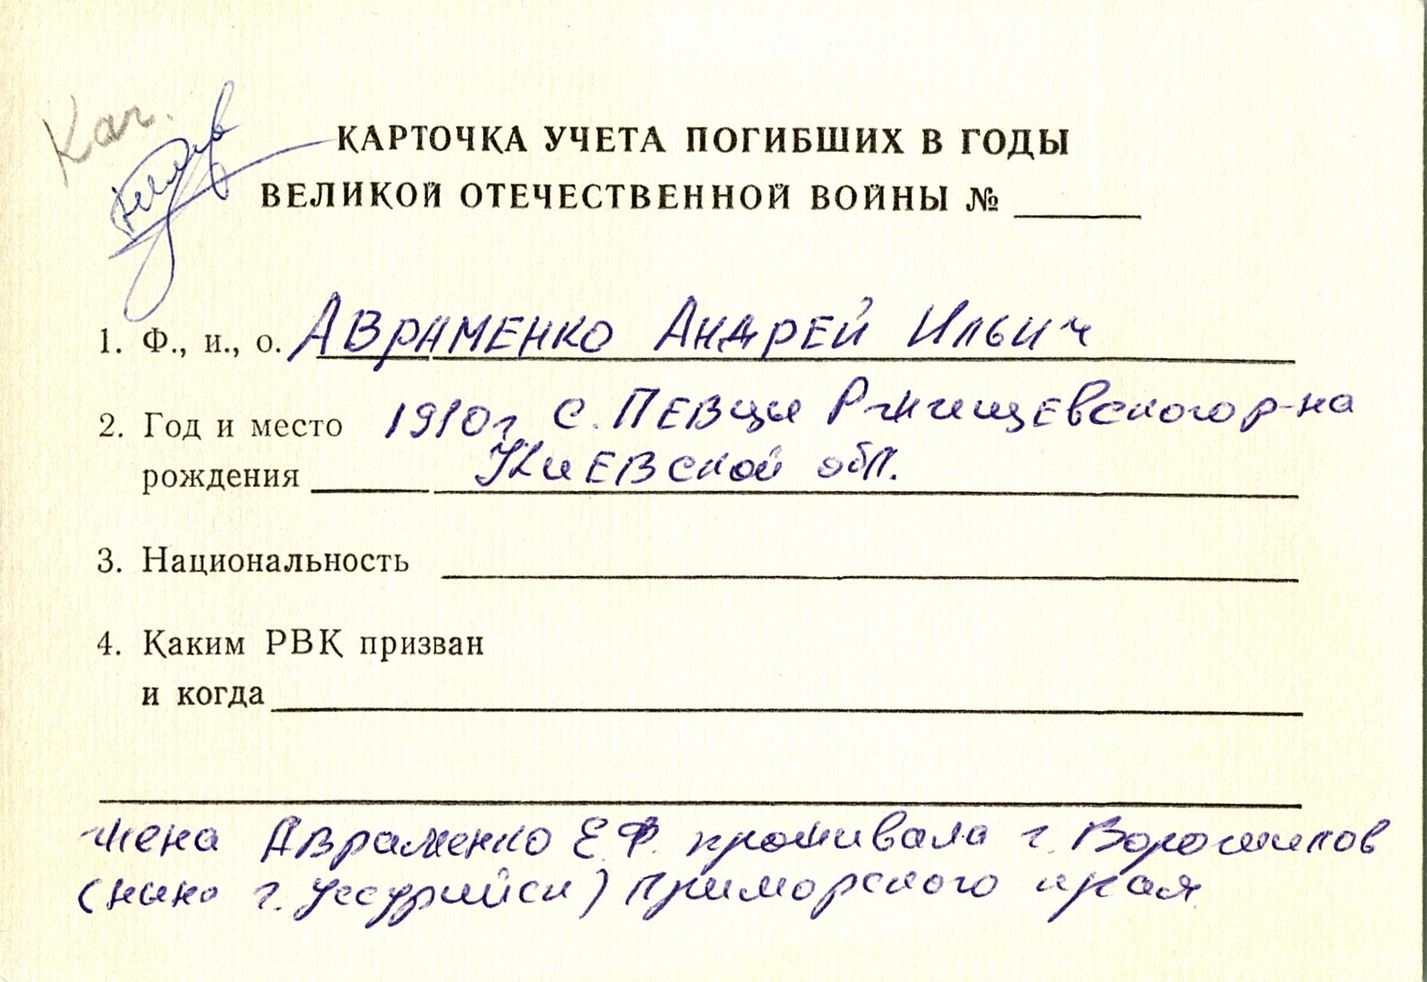 Каг.
КАРТОЧКА УЧЕТА ПОГИБШИХ В ГОДЫ
ВЕЛИКОЙ ОТЕЧЕСТВЕННОЙ ВОЙНЫ № ______
1. Ф., и., о. АВРАМЕНКО АНДРЕЙ ИЛЬИЧ
2. Год и место 1910г с. ПЕВЦЫ Ржищевского р-на
рождения КИЕВской обл.
3. Национальность
4. Каким РВК призван
и когда
жена Авраменко Е.Ф. проживала г. Ворошилов
(ныне г. Уссурийск) Приморского края